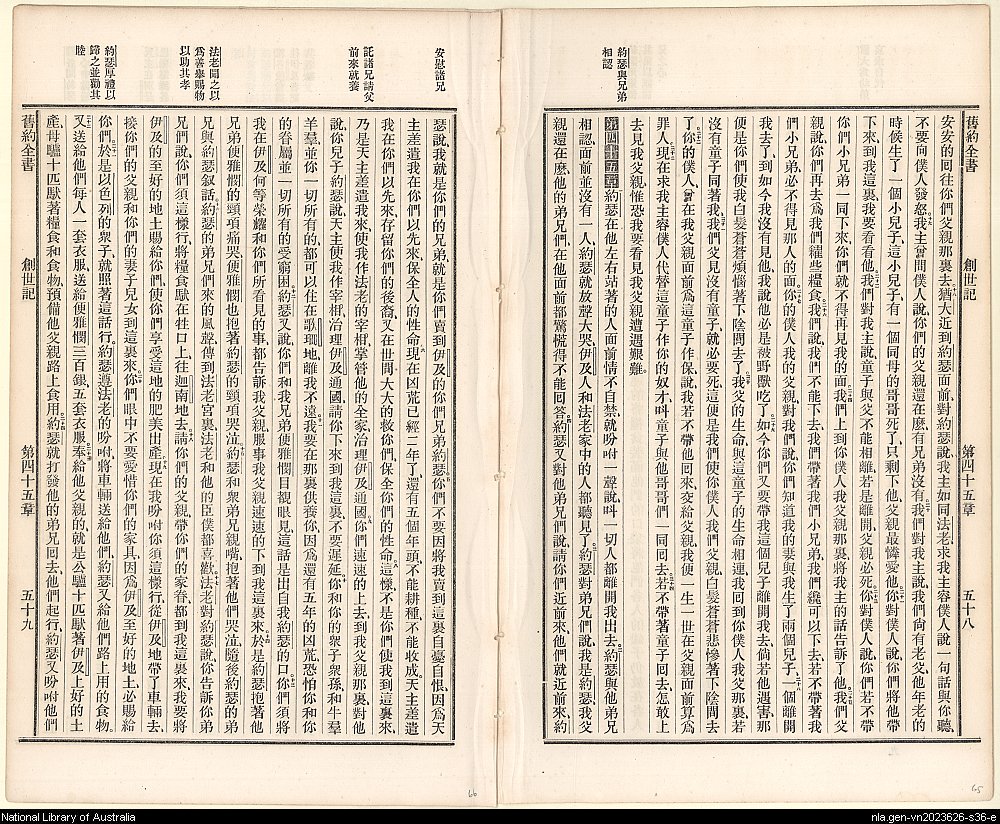 舊約全書 創世記 第四十五章 五十八
安安的同往你們父親那裏去猶大近到約瑟面前對約瑟說我主如同法老求我主容僕人說一句話與你聽
不要向僕人發怒我主曾問僕人說你們父親還在麼有兄弟沒有我們對我主說我們尚有老父他年老的
時候生了一個小兒子這小兒子有一個同母的哥哥死了只剩下他父親最憐愛他你對僕人說你們將他帶
下來到我這裏我要看看他我們對我主說童子與父不能相離若是離開父親必死你對僕人說你們若不帶
你們小兄弟一同下來你們就不得再見我的面我們上到你僕人我父親那裏將我主的話告訴了他我們父
親說你們再去爲我們糴些糧食我們說我們不能下去我們帶著我們小兄弟我們纔可以下去若不帶著我
們小兄弟必不得見那人的面你的僕人我的父親對我們說你們知道我的妻與我生了兩個兒子一個離開
我去了到如今我沒有見他我說他必是被野獸吃了如今你們又要帶我這個兒子離開我去倘若他遇害那
便是你們使我白髮蒼蒼煩惱著下陰間去了我父的生命與這童子的生命相連我回到你僕人我父那裏若
沒有童子同著我我們父見沒有童子就必要死這便是我們使你僕人我們父親白髮蒼蒼悲慘著下陰間去
了你的僕人曾在我父親面前爲這童子作保說我若不帶他回來交給父親我便一生一世在父親面前算爲
罪人現在求我主容僕人代替這童子作你的奴才呌童子與他哥哥們一同回去若不帶著童子回去怎敢上
去見我父親惟恐我要看見我父親遭遇艱難
第四十五章約瑟在他左右站著的人面前情不自禁就吩咐一聲說呌一切人都離開我出去約瑟與他弟兄
相認面前並沒有一人約瑟就放聲大哭伊及人和法老家中的人都聽見了約瑟對弟兄們說我是約瑟我父
親還在麼他的弟兄們在他面前都驚慌得不能回答約瑟又對他弟兄們說請你們近前來他們就近前來約
約瑟與兄弟
相認
瑟說我就是你們的兄弟就是你們賣到伊及的你們兄弟約瑟你們不要因將我賣到這裏自憂自恨因爲天
主差遣我在你們以先來保全人的性命現在凶荒已經二年了還有五個年頭不能耕種不能收成天主差遣
我在你們以先來存留你們的後裔又在世間大大的救你們保全你們的性命這樣不是你們使我到這裏來
乃是天主差遣我來使我作法老的宰相掌管他的全家治理伊及通國你們速速的上去到我父親那裏對他
說你兒子約瑟說天主使我作宰相治理伊及通國請你下來到我這裏不要遲延你和你的衆子衆孫和牛羣
羊羣並你一切所有的都可以住在歌珊地離我不遠我要在那裏供養你因爲還有五年的凶荒恐怕你和你
的眷屬並一切所有的受窮困約瑟又說你們和我兄弟便雅憫目覩眼見這話是出自我約瑟的口你們須將
我在伊及何等榮耀和你們所看見的事都告訴我父親服事我父親速速的下到我這裏來於是約瑟抱著他
兄弟便雅憫的頸項痛哭便雅憫也抱著約瑟的頸項哭泣約瑟和衆弟兄親嘴抱著他們哭泣隨後約瑟的弟
兄與約瑟叙話約瑟的弟兄們來的風聲傳到法老宮裏法老和他的臣僕都喜歡法老對約瑟說你告訴你弟
兄們說你們須這樣行將糧食馱在牲口上往迦南地去請你們的父親帶你們的家眷都到我這裏來我要將
伊及的至好的地土賜給你們使你們享受這地的肥美出產現在我吩咐你須這樣行從伊及地帶了車輛去
接你們的父親和你們的妻子兒女到這裏來你們眼中不要愛惜你們的家具因爲伊及至好的地土必賜給
你們於是以色列的衆子就照著這話行約瑟遵法老的吩咐將車輛送給他們約瑟又給他們路上用的食物
又送給他們每人一套衣服送給便雅憫三百銀五套衣服奉給他父親的就是公驢十匹馱著伊及上好的土
產母驢十匹馱著糧食和食物預備他父親路上食用約瑟就打發他的弟兄回去他們起行約瑟又吩咐他們
舊約全書 創世記 第四十五章 五十九
安慰諸兄
託諸兄請父
前來就養
法老聞之以
爲善舉賜物
以助其孝
約瑟厚禮以
歸之並勸其
睦
66
65
National Library of Australia
nla.gen-vn2023626-s36-e